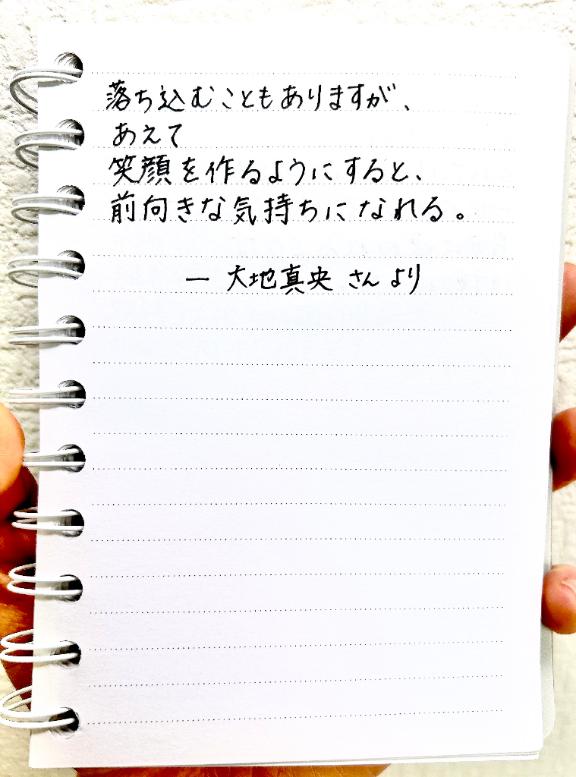 落ち込むこともありますが、
あえて
笑顔を作るようにすると、
前向きな気持ちになれる。
― 大地真央 さん より